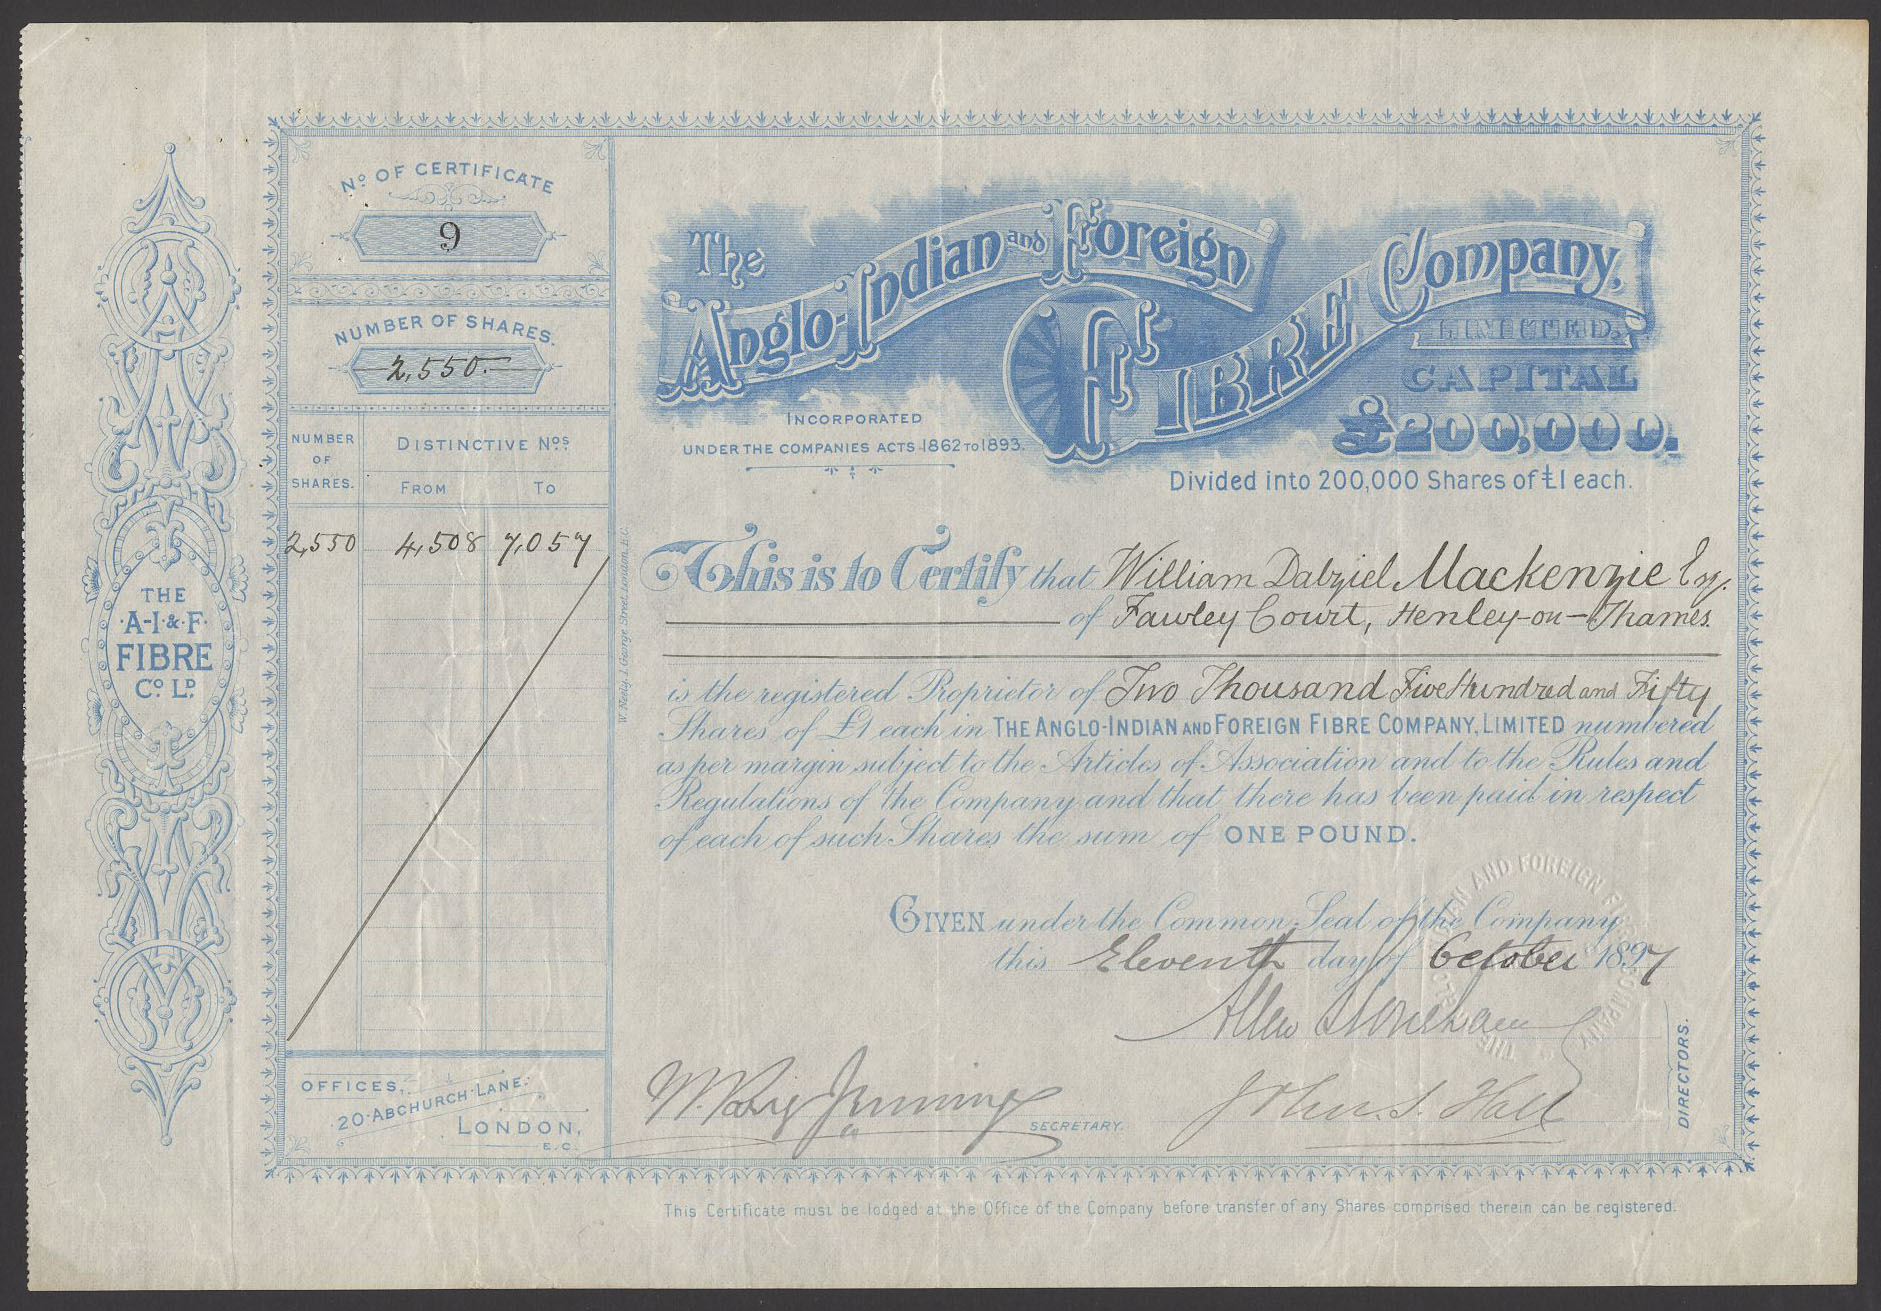 THE
·A-I·&·F·
FIBRE
Cº. Lᴰ.
Nº OF CERTIFICATE
9
NUMBER OF SHARES.
2,550.
NUMBER OF SHARES.
DISTINCTIVE Nºˢ.
FROM
TO
2,550 4,508 7,057
OFFICES,
20·ABCHURCH·LANE.
LONDON,
E.C.
The
Anglo-Indian and Foreign
FIBRE Company,
LIMITED.
CAPITAL
£200,000.
Divided into 200,000 Shares of £1 each.
INCORPORATED
UNDER THE COMPANIES ACTS 1862 TO 1893.
This is to Certify that William Dalziel Mackenzie Esq.
of Fawley Court, Henley-on-Thames.
is the registered Proprietor of Two Thousand Five Hundred and Fifty
Shares of £1 each in THE ANGLO-INDIAN AND FOREIGN FIBRE COMPANY, LIMITED numbered
as per margin subject to the Articles of Association and to the Rules and
Regulations of the Company and that there has been paid in respect
of each of such Shares the sum of ONE POUND.
GIVEN under the Common Seal of the Company
this Eleventh day of October 1897
Allen
John S. Hall
DIRECTORS.
W. Jennings
SECRETARY.
This Certificate must be lodged at the Office of the Company before transfer of any Shares comprised therein can be registered.